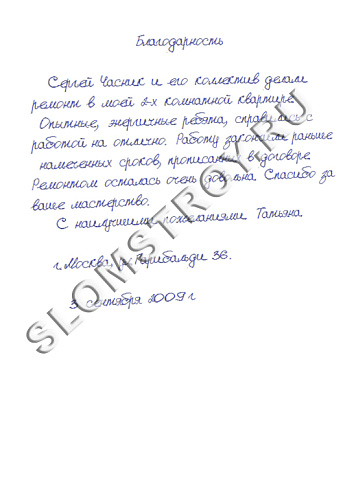 Благодарность
Сергей Часник и его коллектив делали
ремонт в моей 2-х комнатной квартире.
Опытные, энергичные ребята, справились с
работой на отлично. Работу закончили раньше
намеченных сроков, прописанных в договоре.
Ремонтом осталась очень довольна. Спасибо за
ваше мастерство.
С наилучшими пожеланиями Татьяна
г. Москва, Гарибальди 36.
3 сентября 2009 г
SLOMSTROY.RU